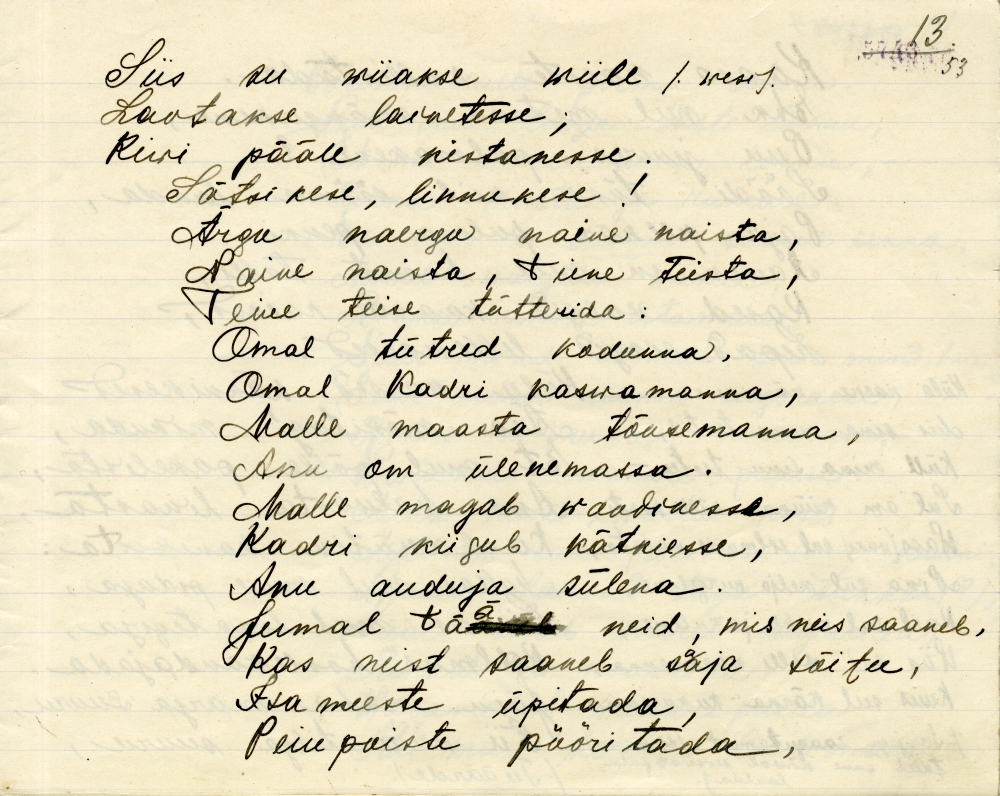 13
53
Siis su wiiakse wiile /: wesi :/.
Laotakse lainetesse;
Kiwi pääle nistanesse.
Sõtsikese, linnukese!
Ärgu naergu naine naista,
Naine naista, tiine teista,
Teine teise tütterida:
Omal tütred kodunna,
Omal Kadri kaswamanna,
Malle maasta tõusemanna,
Anu om ülenemassa.
Malle magab woodinesse,
Kadri kiigub kätkiesse,
Anu auduja sülena.
Jumal tää neid, mis neis saaneb,
Kas neist saaneb saja sõitu,
Isa meeste üpitada,
Peiu poiste pööritada,